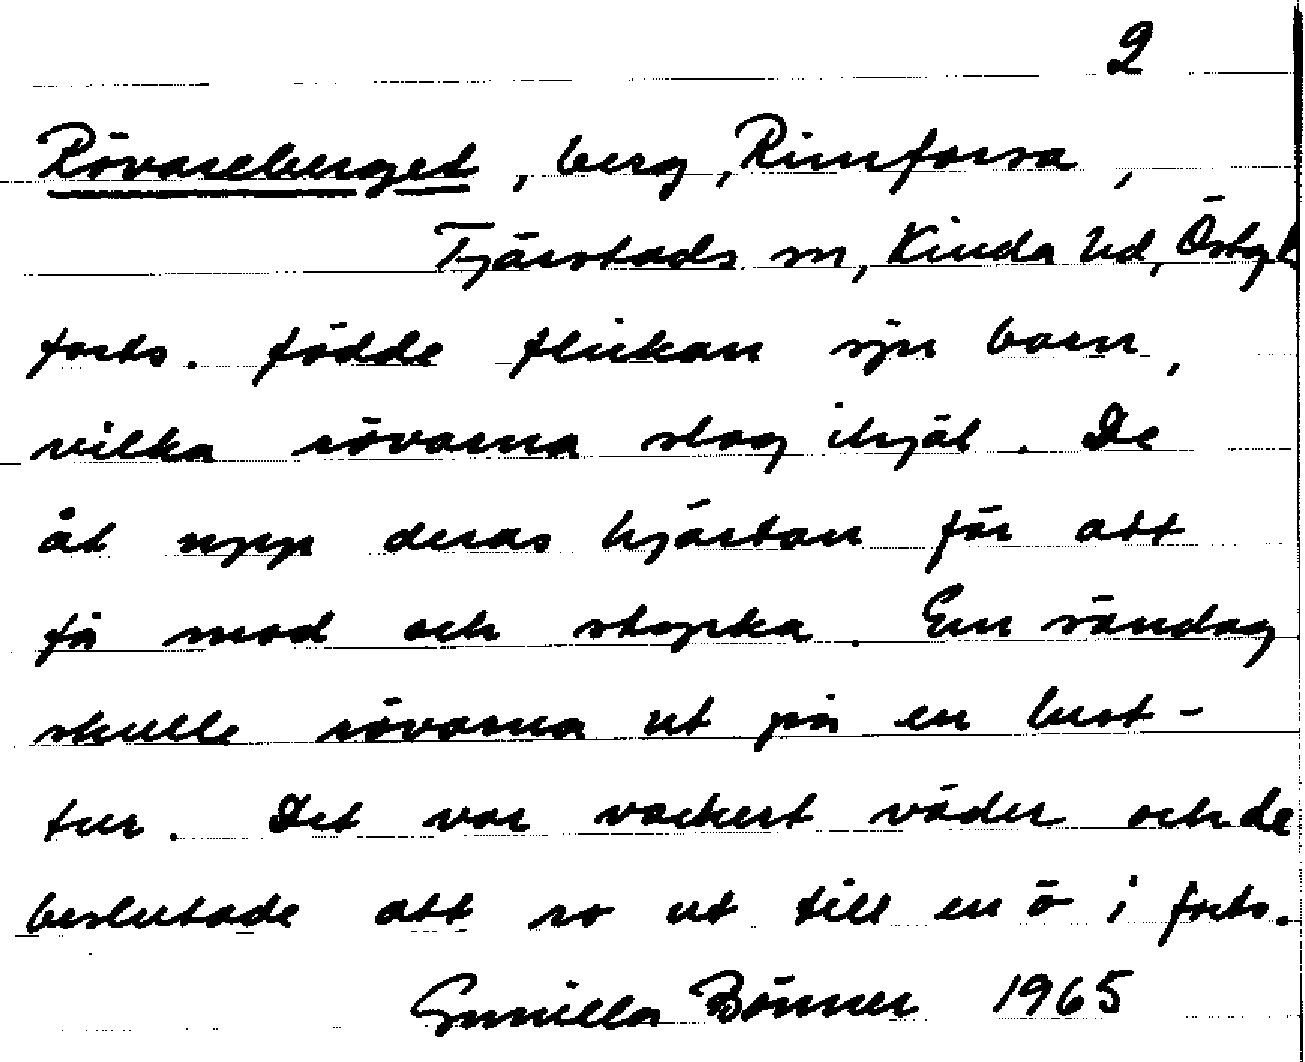 2
Rövareberget, berg, Rimforsa,
Tjärstads sn, Kinda hd, Östgl
forts. födde flickan sju barn,
vilka rövarna slog ihjäl. De
åt upp deras hjärtan för att
få mod och styrka. En söndag
skulle rövarna ut på en lust-
tur. Det var vackert väder och de
beslutade att ro ut till en ö i forts.
Gunilla Bönner 1965